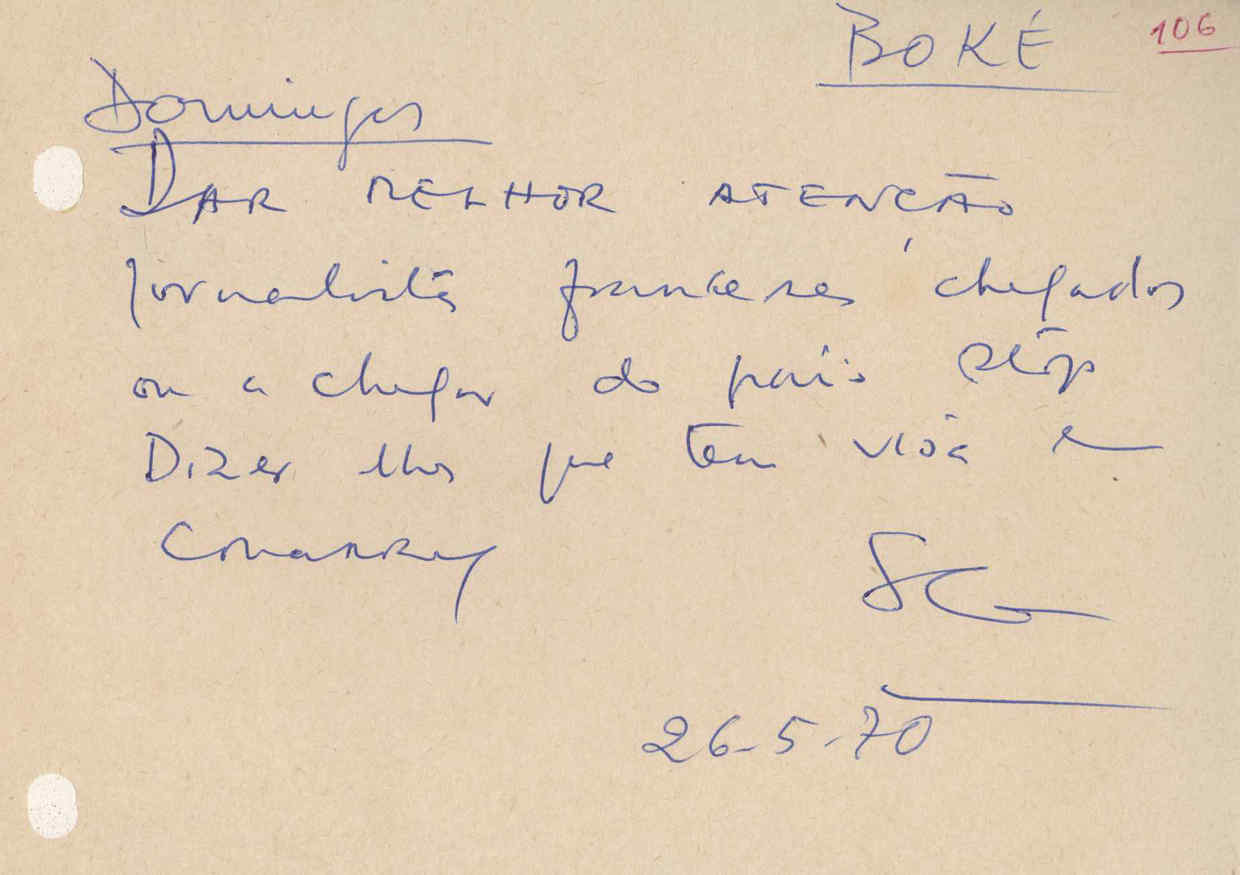 BOKÉ 106
Domingos
DAR MELHOR ATENÇÃO
jornalistas franceses chegados
ou a chegar do país stop
Dizer lhes que tem visa e
Conakry
26-5-70